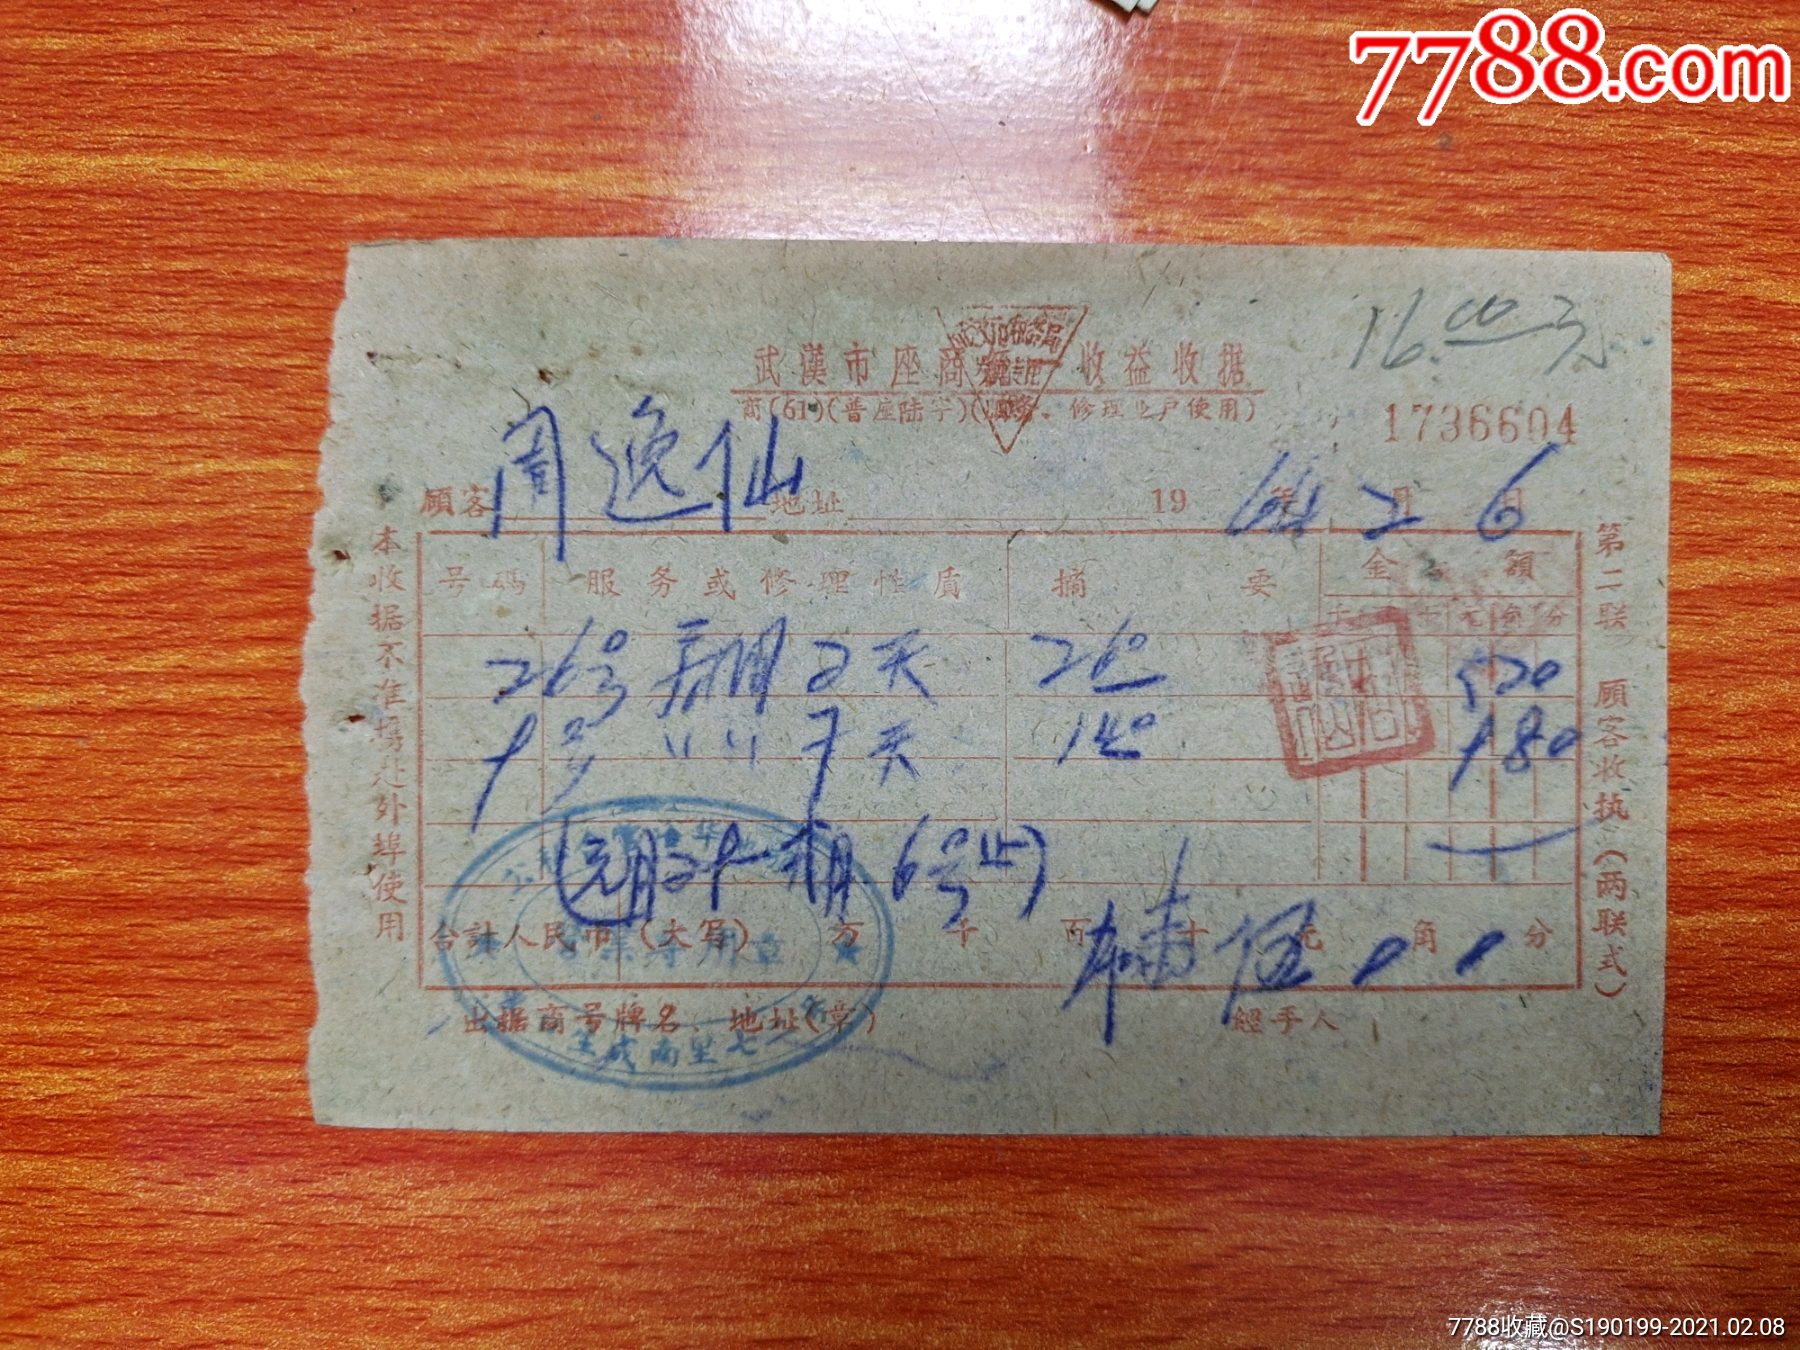 7788.com
武漢市座商 收益收据
商(61)(普座陆字)(服务、修理业户使用)
16.00元
1736604
顧客 周逸仙 地址 1964年2月6日
本收据不准携赴外埠使用
号碼 服务或修理性质 摘要 金額
元角分
26号 房間2天 260 520
9号 〃〃 7天 140 980
6号止)
合計人民币(大写) 万千百十伍元角分
出据商号牌名、地址(章) 經手人
成南里七
第二联 顧客收执(两联式)
7788收藏@S190199-2021.02.08